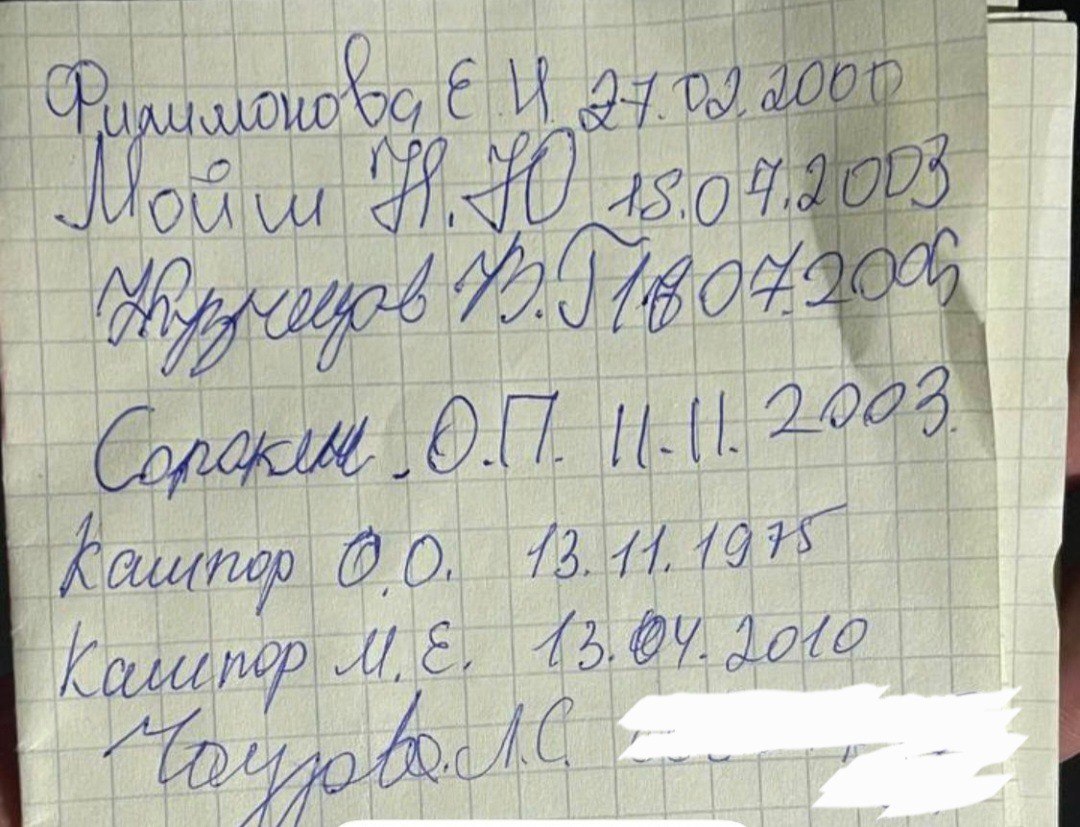 Филимонова Е.И. 27.02.2000
Мойш Н.Ю 18.07.2003
Кузнецов В.Г 18 07.2005
Сорокин О.П. 11.11.2003.
Кашпор О.О. 13.11.1975
Кашпор М.Е. 13.04.2010
Л.С.